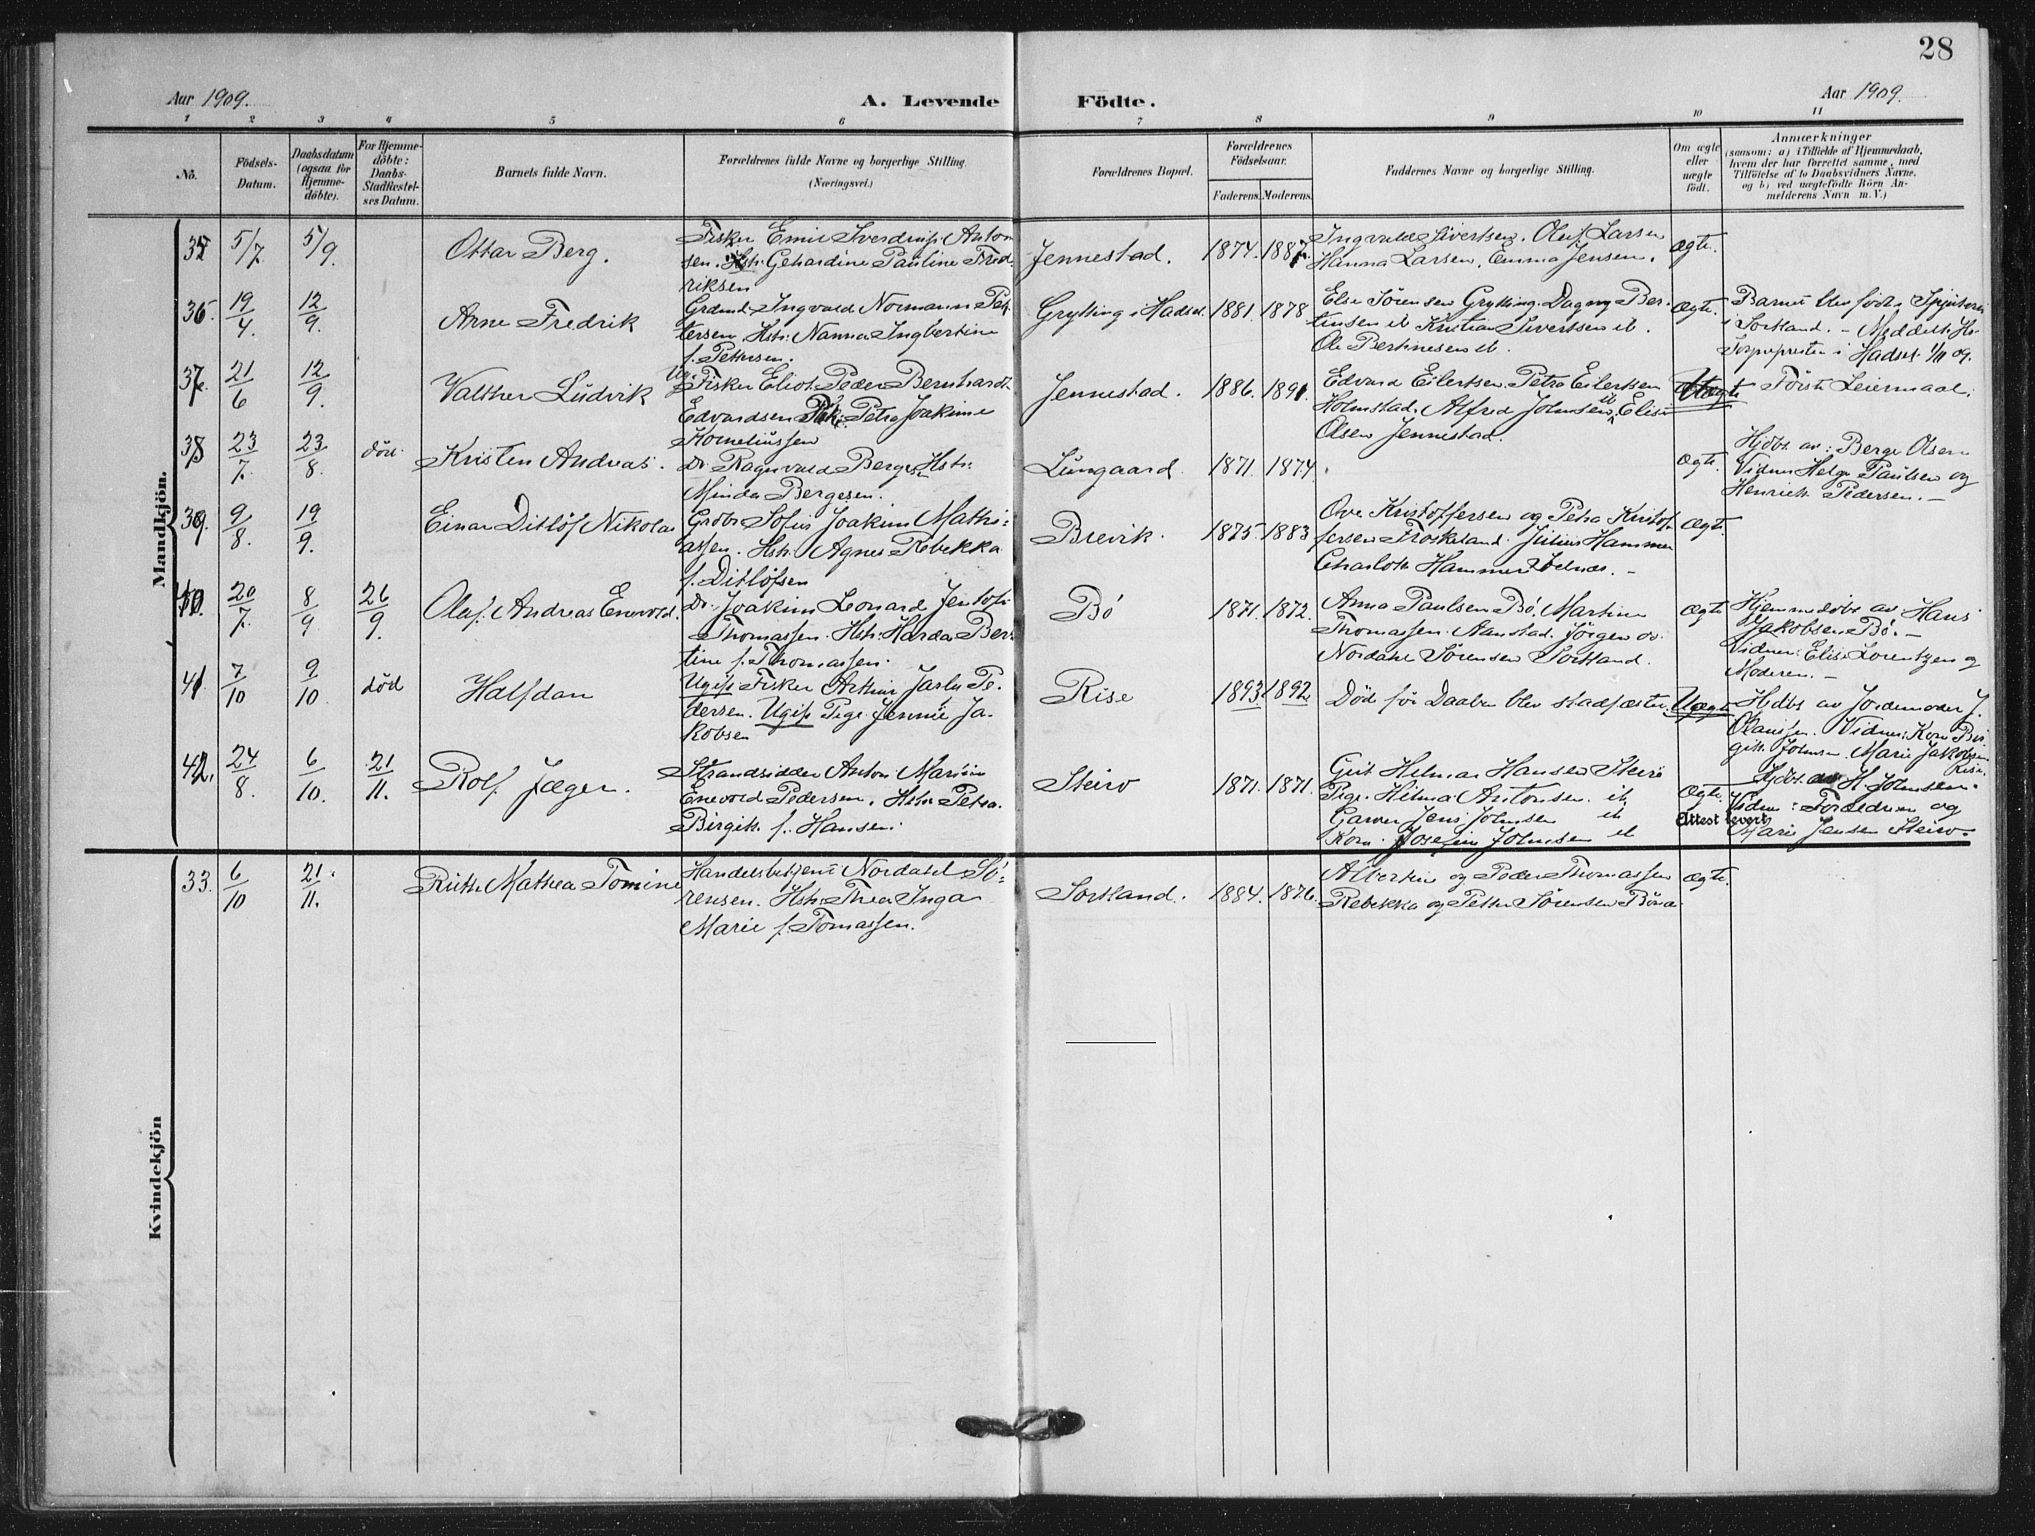 28
Aar 1909.
A. Levende Födte.
Aar 1909.
1 2 3 4 5 6 7 8 9 10 11
No.
Födsels-
Datum.
Daabsdatum
(ogsaa for
Hjemme-
döbte).
For Hjemme-
döbte:
Daabs-
Stadfæstel-
ses Datum.
Barnets fulde Navn.
Forældrenes fulde Navne og borgerlige Stilling.
(Næringsvei.)
Forældrenes Bopæl.
Forældrenes
Födselsaar.
Faderens. Moderens.
Faddernes Navne og borgerlige Stilling.
Om ægte
eller
uægte
födt.
Anmærkninger
(saasom: a) i Tilfælde af Hjemmedaab,
hvem der har forrettet samme, med
Tilföielse af to Daabsvidners Navne,
og b) ved uægtefödte Börn An-
melderens Navn m. V.)
Mandkjön.
35 5/7 5/9
Ottar Berg.
Fisker Emil Sverdrup Anton
sen. Hstr. Gehardine Pauline Fred
riksen
Jennestad.
1874. 1887.
Ingvald Sivertsen. Oluf Larsen
Hanna Larsen, Emma Jensen.
Ægte.
36. 19/4. 12/9.
Arne Fredrik
Grdmd. Ingvald Normann Pet
tersen. Hstr. Nanna Ingbertine
f. Pettersen.
Grytting i Hadsel.
1881. 1878
Else Sörensen Grytting. Dagny Ber-
tinsen ib Kristian Sivertsen ib.
Ole Bertinesen ib.
Ægte.
Barnet blev født i
i Sortland. – Meddelt
i Hadsel 1/11 09.
37. 21/6 12/9.
Valther Ludvik
Ug. Fisker Eliot Peder Bernhard
Edvardsen Pik. Petra Joakime
Korneliussen
Jennestad.
1886. 1891
Edvard Eilertsen. Petra Eilertsen
Holmstad. Alfred Johnsen ib, Elise
Olsen Jennestad.
Uægte
Første Leiermaal.
38 23/7. 23/8.
død.
Kristen Andreas.
Do Ragnvald Bergesen Hstr.
Minda Bergesen.
Lungaard.
1871. 1874.
Ægte.
Hjdbt. av: Berge Olsen
Vidner Helge Paulsen og
Henrich Pedersen. –
39. 9/8. 19/9.
Einar Ditlöf Nikolai
Grdbr. Sofus Joakim Mathi-
assen. Hstr. Agnes Rebekka
f. Ditlöfsen
Brevik.
1875. 1883
Ove Kristoffersen og Petra Kristof
fersen Froskeland. Julius Hammer
Charlotte Hammer –
Ægte.
40. 20/7. 8/9 26/9.
Olaf Andreas Enevold.
Do. Joakim Leonard Jentoft
Thomassen. Hstr. Harda Ber
tine f. Thomassen.
Bö
1871. 1872.
Anna Paulsen Bö. Martine
Thomassen. Aanstad. Jörgen og
Nordahl Sörensen Sortland.
Ægte
Hjemmedöbt av Hans
Jakobsen Bö. –
Vidner: Elise Lorentzen og
Moderen. –
41. 7/10 9/10
død
Halfdan
Ugift Fisker Arthur Jarle Pe-
dersen. Ugift Pige Jennie Ja-
kobsen
Rise
1893. 1892
Død før Daaben blev stadfæstet.
Uægte
Hjdbt av Jordemoder J.
Olaussen. Vidner: Kone Bir
gitte Johnsen Marie Jakobsen
Rise.
42. 24/8. 6/10. 21/11.
Rolf Jæger.
Strandsidder Anton Marius
Enevold Pedersen. Hstr. Petra
Birgitte f. Hansen.
Steiro
1871. 1871.
Gut Hilmar Hansen Steiro
Pige. Hilma Antonsen ib
Garver Jens Johnsen ib
Kone. Josefine Johnsen ib
Ægte.
Attest levert
Hjdbt. av H. Johnsen.
Vidner: Forældrene og
Marie Jensen Steiro.
Kvindekjön
33. 6/10 21/11.
Ruth Mathea Tomine
Handelsbetjent Nordahl Sö-
rensen. Hstr. Thea Inga
Marie f. Tomassen.
Sortland.
1884. 1876.
Albertine og Peder Thomassen
Rebekka og Petter Sörensen
Ægte.